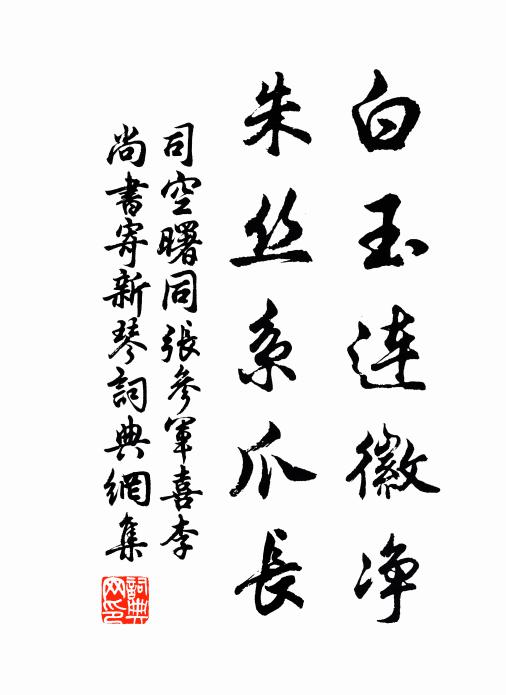 白玉连徽净
朱丝系爪長
司空曙同張參軍喜李
尚書寄新琴詞典網集
詞典
网印